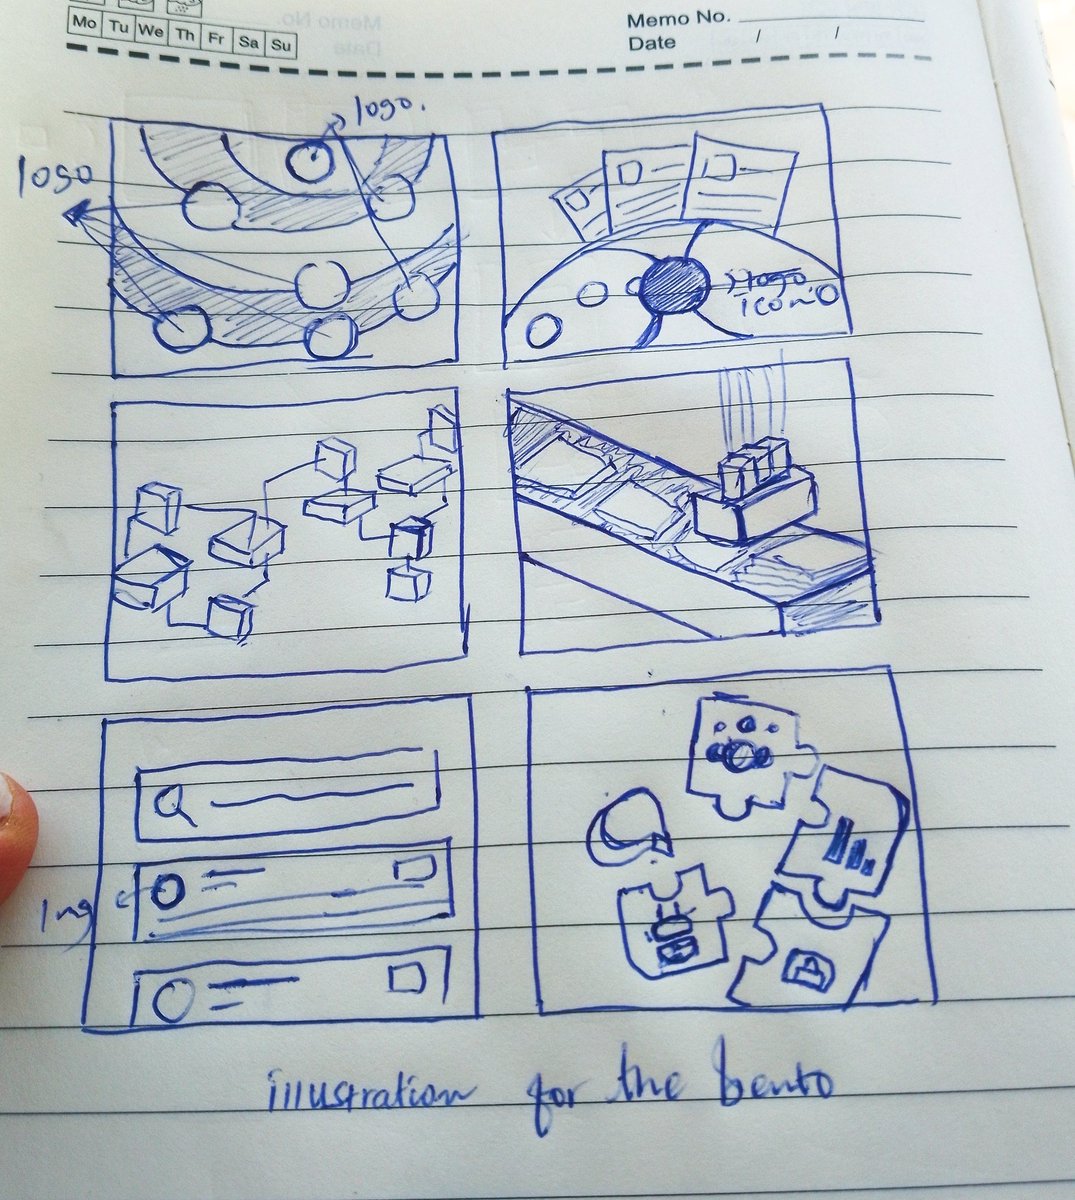 Mo Tu We Th Fr Sa Su
Memo No.
Date / /
logo.
logo
logo
icon
illustration for the bento